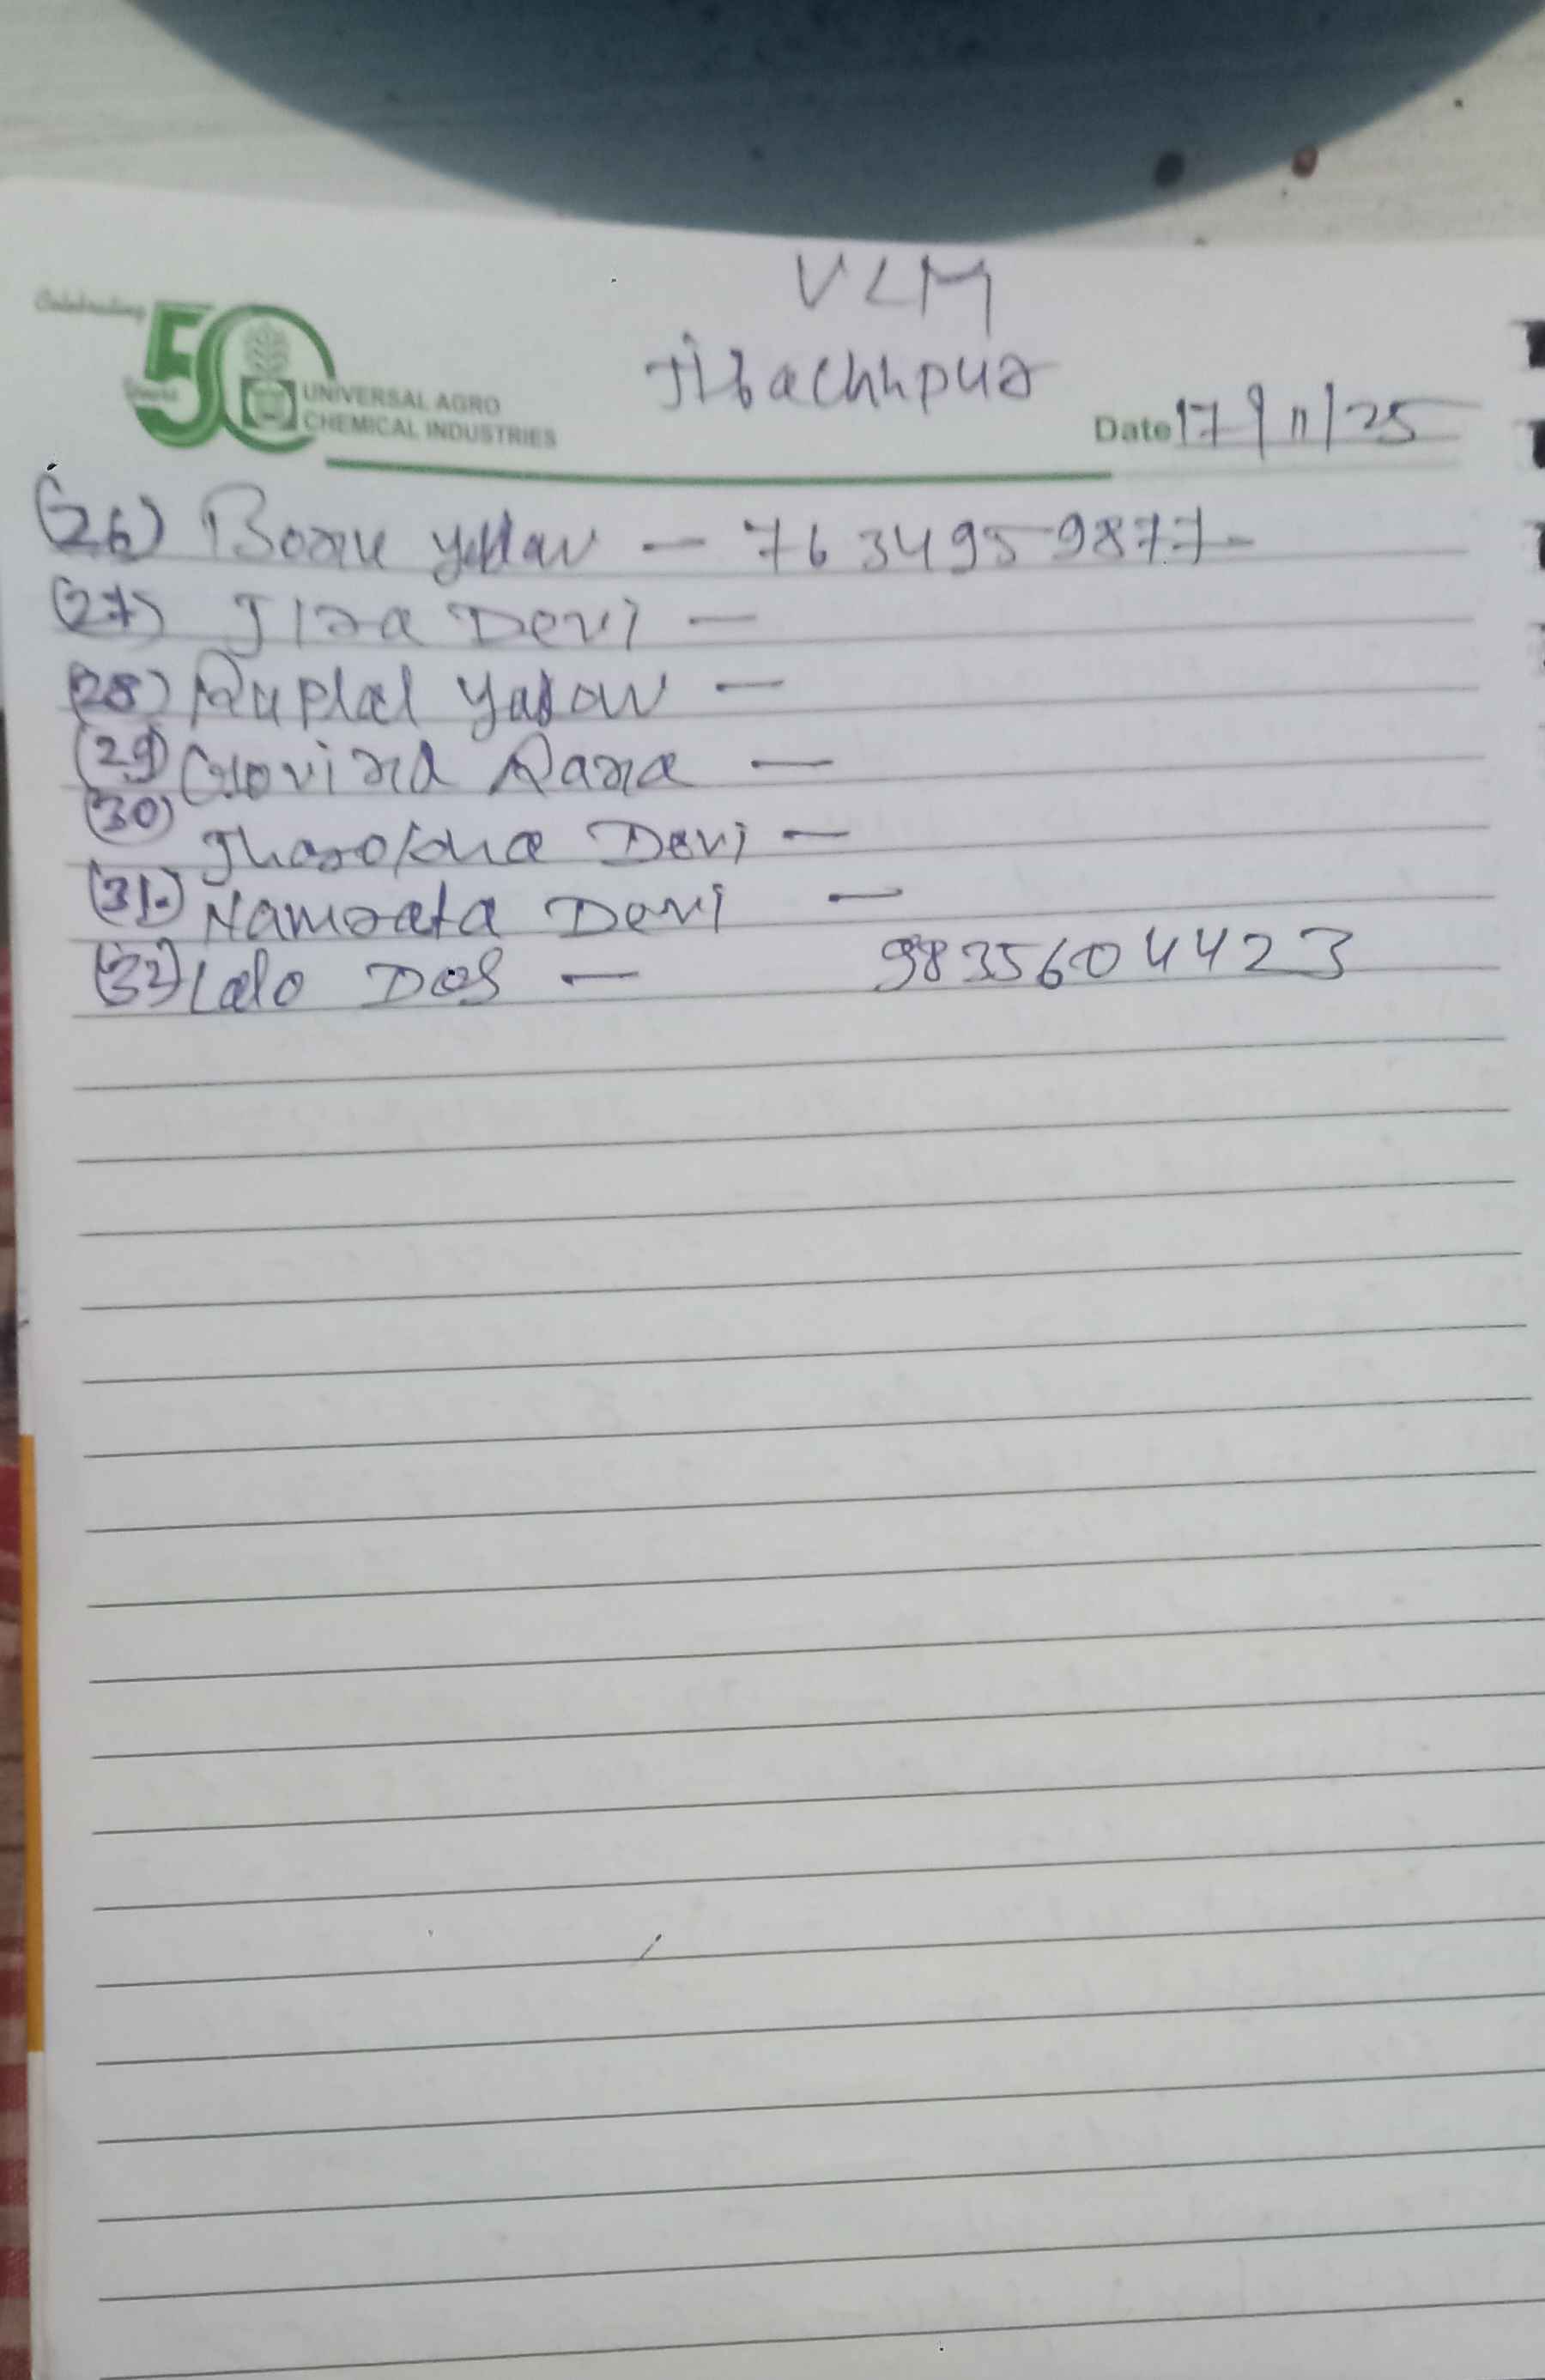 VLM
Jibachhpur
Celebrating
50
Years
UNIVERSAL AGRO
CHEMICAL INDUSTRIES
Date 17/11/25
(26) Yadav — 7634959877-
(27) Jira Devi —
(28) Ruplal Yadav —
(29) Govind Rana —
(30) Devi —
(31.) Namrata Devi —
(32) Lalo Das — 9835604423